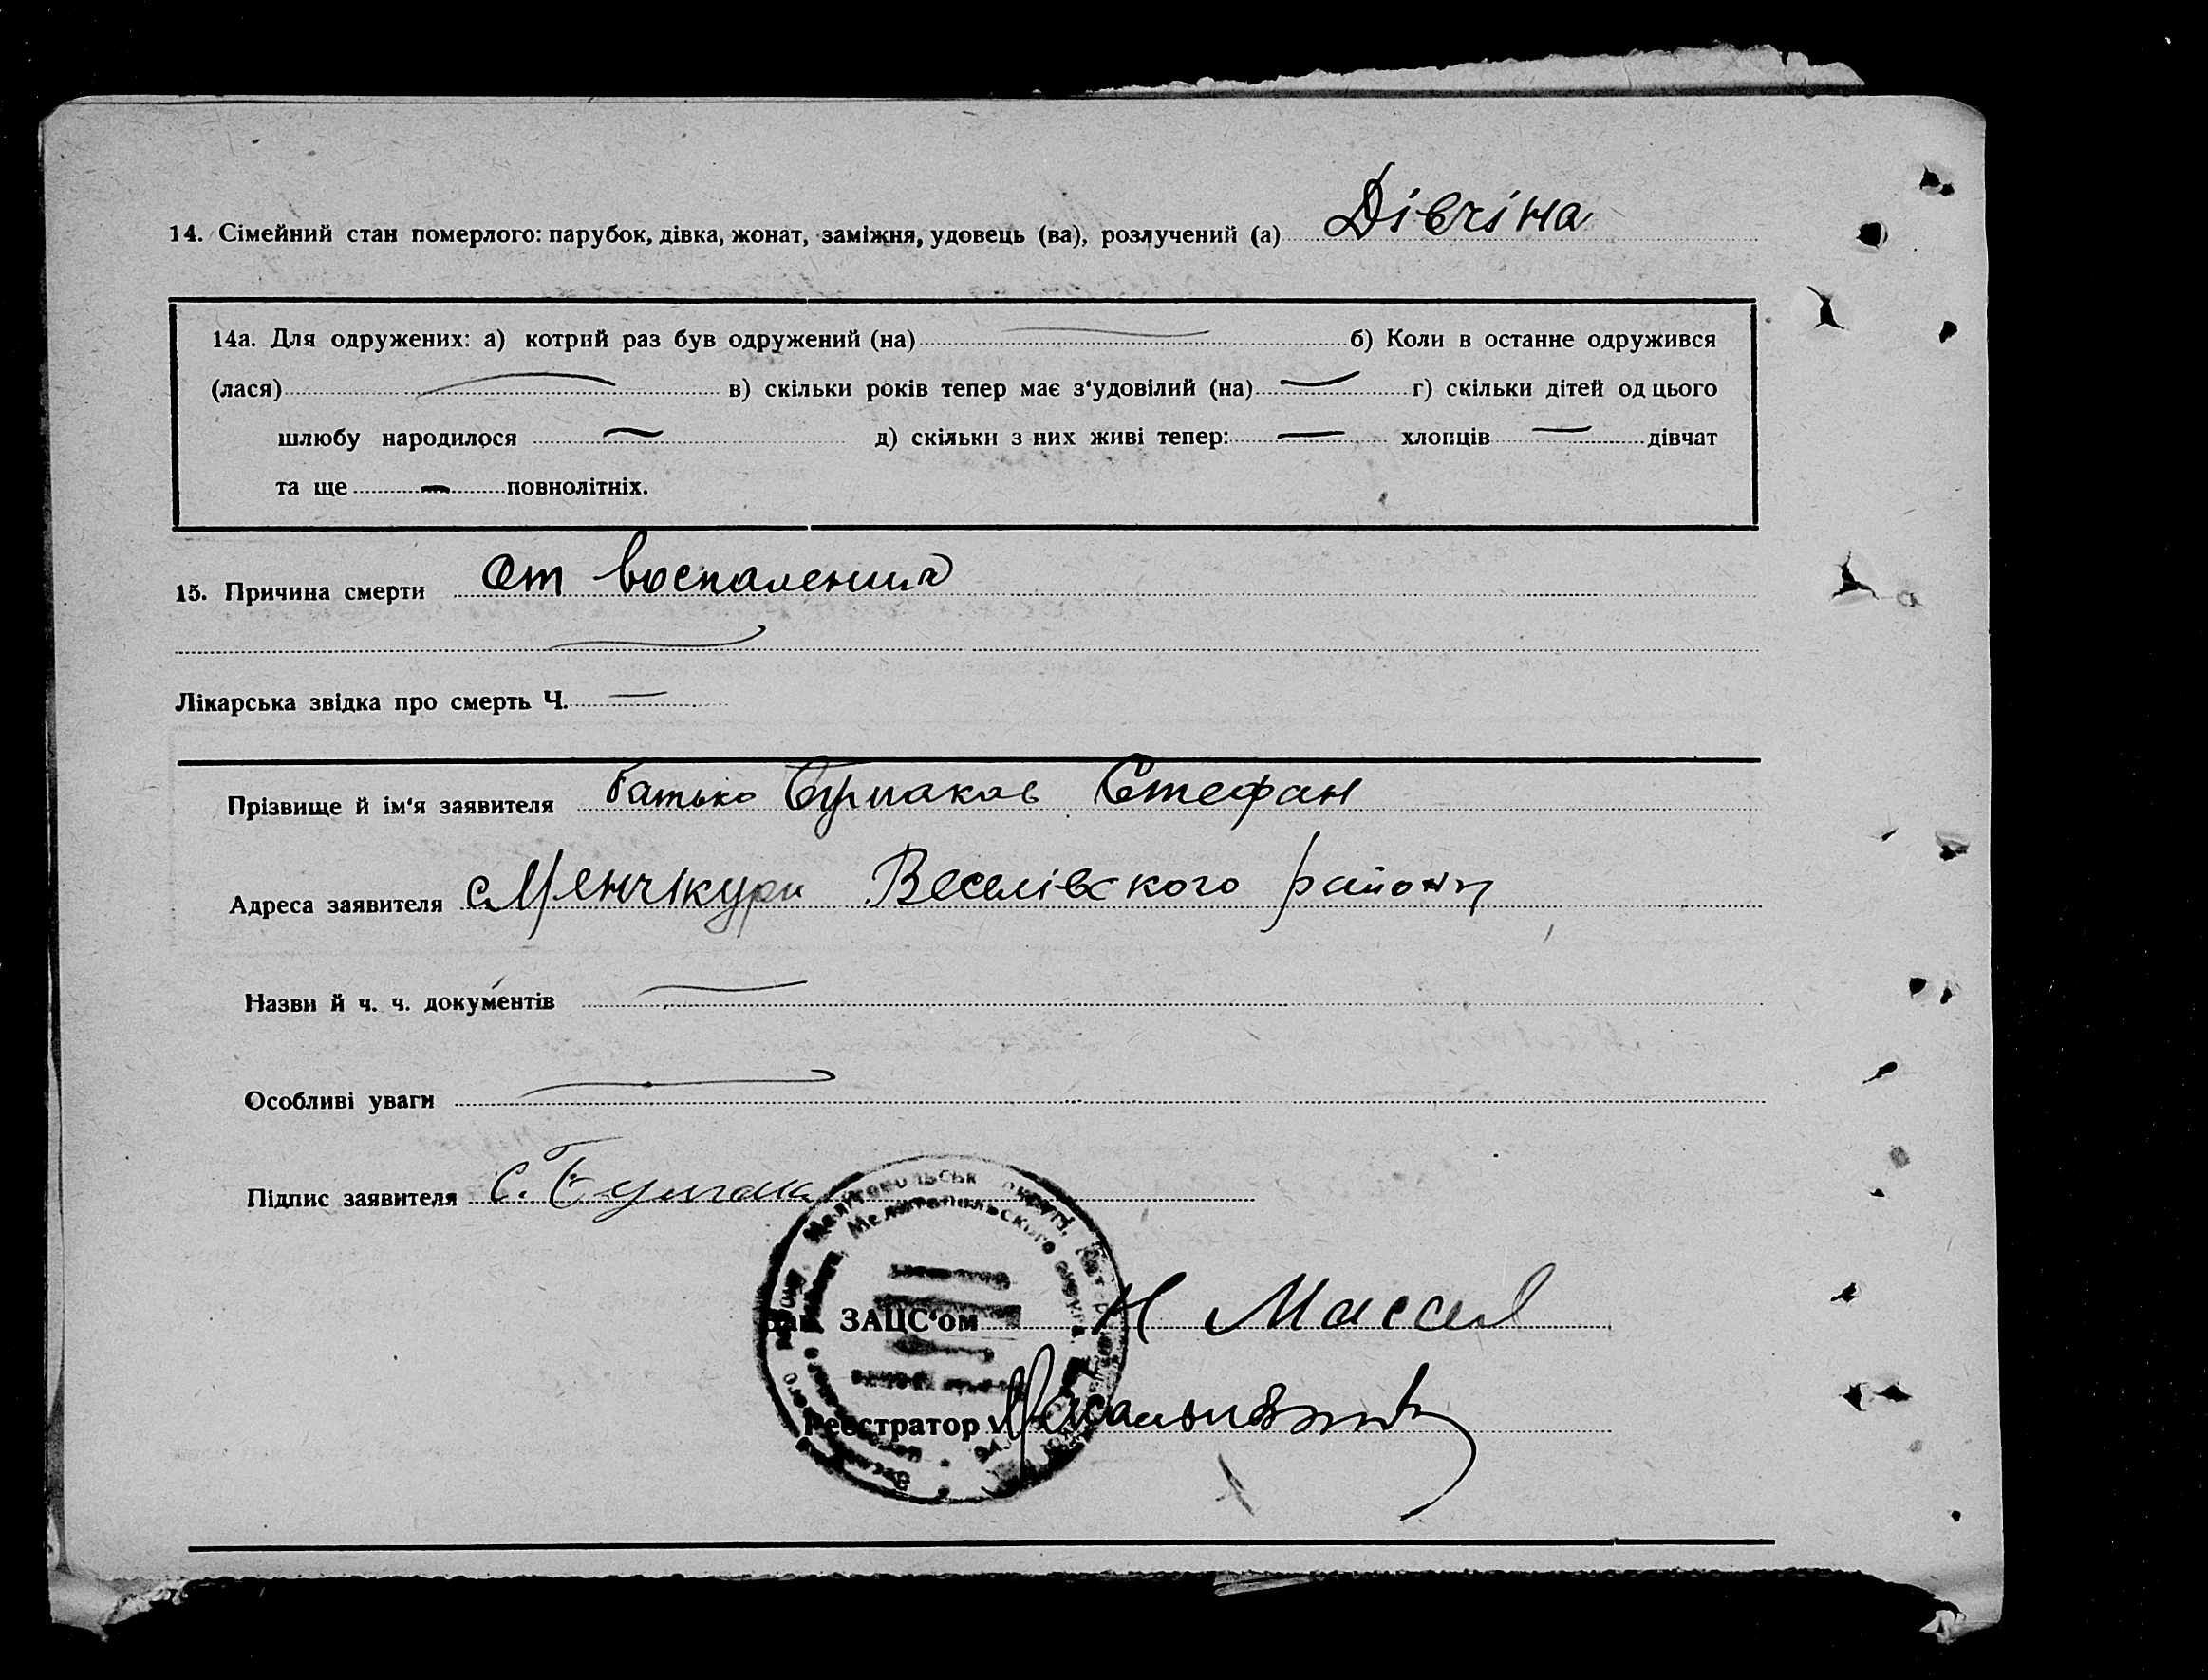 14. Сімейний стан померлого: парубок, дівка, жонат, заміжня, удовець (ва), розлучений (а) Дівчіна
14а. Для одружених: а) котрий раз був одружений (на) б) Коли в останне одружився
(лася) в) скільки років тепер має з'удовілий (на) г) скільки дітей од цього
шлюбу народилося д) скільки з них живі тепер: хлопців дівчат
та ще повнолітніх.
15. Причина смерти От воспаления
Лікарська звідка про смерть Ч.
Прізвище й ім'я заявителя батько Стефан
Адреса заявителя с Менчікури Веселівского району
Назви й ч. ч. документів
Особливі уваги
Підпис заявителя С.
Зав. ЗАЦС'ом Н
Реєстратор